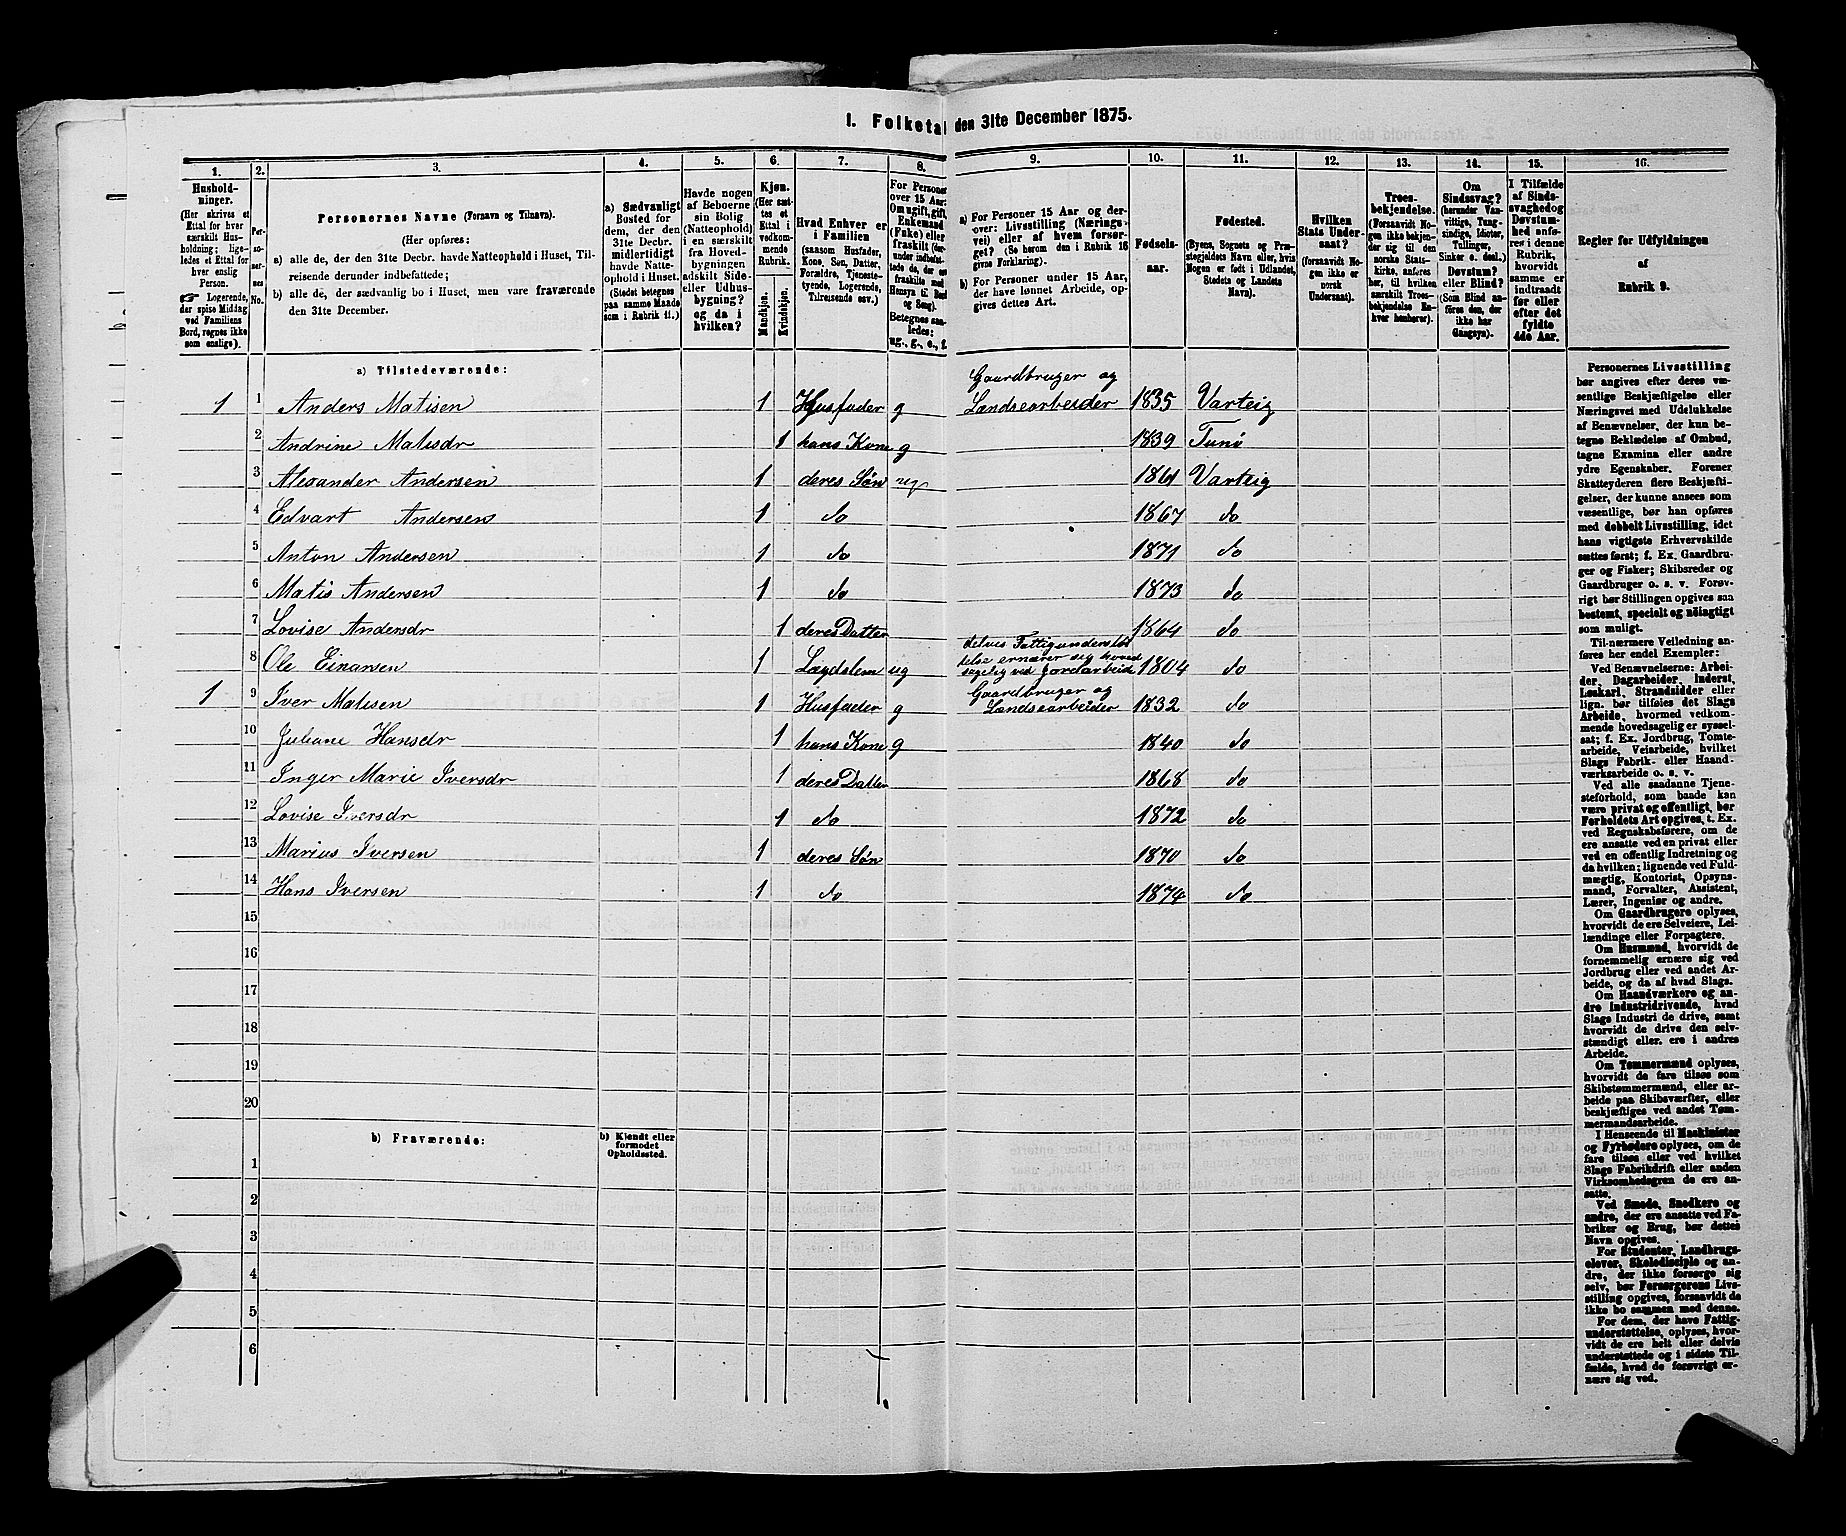 1. Folketa den 31te December 1875.
1. 2. 3. 4. 5. 6. 7. 8. 9. 10. 11. 12. 13. 14. 15. 16.
Hushold-
ninger.
(Her skrives et
Ettal for hver
særskilt Hus-
holdning; lige-
ledes et Ettal for
hver enslig
Person.
☞ Logerende,
der spise Middag
ved Familiens
Bord, regnes ikke
som enslige).
Per-
so-
ner-
nes
No.
Personernes Navne (Fornavn og Tilnavn).
(Her opføres:
a) alle de, der den 31te Decbr. havde Natteophold i Huset, Til-
reisende derunder indbefattede;
b) alle de, der sædvanlig bo i Huset, men vare fraværende
den 31te December.
a) Sædvanligt
Bosted for
dem, der den
31te Decbr.
midlertidigt
havde Natte-
ophold i Huset.
(Stedet betegnes
paa samme Maade
som i Rubrik 11.)
Havde nogen
af Beboerne
sin Bolig
(Natteophold)
i en særskilt
fra Hoved-
bygningen
adskilt Side-
eller Udhus-
bygning?
og da i
hvilken?
Kjøn.
(Her sæt-
tes et
Ettal i
vedkom-
mende
Rubrik.
Mandkjøn.
Kvindekjøn.
Hvad Enhver er
i Familien
(saasom Husfader,
Kone, Søn, Datter,
Forældre, Tjeneste-
tyende, Logerende,
Tilreisende osv.)
For Personer
over 15 Aar:
Om ugift, gift,
Enkemand
(Enke) eller
fraskilt
Betegnes saa-
ledes:
ug., g., e., f.
a) For Personer 15 Aar og der-
over: Livsstilling (Nærings-
vei) eller af hvem forsør-
get? (Se herom den i Rubrik 16
givne Forklaring).
b) For Personer under 15 Aar,
der have lønnet Arbeide, op-
gives dettes Art.
Fødsels-
aar.
Fødested.
(Byens, Sognets og Præ-
stegjeldets Navn eller, hvis
Nogen er født i Udlandet,
Stedets og Landets
Navn).
Hvilken
Stats Under-
saat?
(forsaavidt No-
gen ikke er
norsk
Undersaat).
Troes-
bekjendelse.
(Forsaavidt No-
gen ikke bekjen-
der sig til den
norske Stats-
kirke, anføres
her, til hvilken
særskilt Troes-
bekjendelse En-
hver henhører).
Om
Sindssvag?
(herunder Van-
vittige, Tung-
sindige, Idioter,
Tullinger,
Sinker o. desl.)
Døvstum?
eller Blind?
(Som Blind an-
føres den, der
ikke har
Gangsyn).
I Tilfælde
af Sinds-
svaghed og
Døvstum-
hed anfø-
res i denne
Rubrik,
hvorvidt
samme er
indtraadt
før eller
efter det
fyldte
4de Aar.
Regler for Udfyldningen
af
Rubrik 9.
a) Tilstedeværende:
1 1 Anders Matisen 1 Husfader g Gaardbruger og
Landsearbeider 1835 Varteig
2 Andrine Matisdr 1 hans Kone g 1839 Tunø
3 Alexander Andersen 1 deres Søn ug 1861 Varteig
4 Edvart Andersen 1 do 1867 do
5 Anton Andersen 1 do 1871 do
6 Matis Andersen 1 do 1873 do
7 Lovise Andersdr 1 deres Datter 1864 do
8 Ole Einarsen 1 Lægdslem ug delvis Fattigunderstøt
telse ernærer sig hoved
sagelig ved Jordarbeid 1804 do
1 9 Iver Matisen 1 Husfader g Gaardbruger og
Landsearbeider 1832 do
10 Juliane Hansdr 1 hans Kone g 1840 do
11 Inger Marie Iversdr 1 deres Datter 1868 do
12 Lovise Iversdr 1 do 1872 do
13 Marius Iversen 1 deres Søn 1870 do
14 Hans Iversen 1 do 1874 do
15
16
17
18
19
20
b) Fraværende:
b) Kjendt eller
formodet
Opholdssted.
1
2
3
4
5
6
Personernes Livsstilling
bør angives efter deres væ-
sentlige Beskjæftigelse eller
Næringsvei med Udelukkelse
af Benævnelser, der kun be-
tegne Beklædelse af Ombud,
tagne Examina eller andre
ydre Egenskaber. Forener
Skatteyderen flere Beskjæfti-
gelser, der kunne ansees som
væsentlige, bør han opføres
med dobbelt Livsstilling, idet
hans vigtigste Erhvervskilde
sættes først; f. Ex. Gaardbru-
ger og Fisker; Skibsreder og
Gaardbruger o. s. v. Forøv-
rigt bør Stillingen opgives saa
bestemt, specielt og nøiagtigt
som muligt.
Til nærmere Veiledning an-
føres her endel Exempler:
Ved Benævnelserne: Arbei-
der, Dagarbeider, Inderst,
Løskarl, Strandsidder eller
lign. bør tilføies det Slags
Arbeide, hvormed vedkom-
mende hovedsagelig er syssel-
sat; f. Ex. Jordbrug, Tomte-
arbeide, Veiarbeide, hvilket
Slags Fabrik- eller Haand-
værksarbeide o. s. v.
Ved alle saadanne Tjene-
steforhold, som baade kan
være privat og offentligt, bør
Forholdets Art opgives, t. Ex.
ved Regnskabsførere, om de
ere ansatte ved en privat eller
ved en offentlig Indretning og
da hvilken; lignende ved Fuld-
mægtig, Kontorist, Opsyns-
mand, Forvalter, Assistent,
Lærer, Ingeniør og andre.
Om Gaardbrugere oplyses,
hvorvidt de ere Selveiere, Lei-
lændinge eller Forpagtere.
Om Husmænd, hvorvidt de
fornemmelig ernære sig ved
Jordbrug eller ved andet Ar-
beide, og da af hvad Slags.
Om Haandværkere og an-
dre Industridrivende, hvad
Slags Industri de drive, samt
hvorvidt de drive den selv-
stændigt eller ere i andres
Arbeide.
Om Tømmermænd oplyses,
hvorvidt de fare tilsøs som
Skibstømmermænd, eller ar-
beide paa Skibsværfter, eller
beskjæftiges ved andet Tøm-
mermandsarbeide.
I Henseende til Maskinister
og Fyrbødere oplyses, om de
fare tilsøs eller ved hvilket
Slags Fabrikdrift eller anden
Virksomhedsgren de ere an-
satte.
Ved Smede, Snedkere og
andre, der ere ansatte ved Fa-
briker og Brug, bør dettes
Navn opgives.
For Studenter, Landbrugs-
elever, Skoledisciple og an-
dre, der ikke forsørge sig
selv, bør Forsørgerens Livs-
stilling opgives, forsaavidt de
ikke bo sammen med denne.
For dem, der have Fattig-
understøttelse, oplyses, hvor-
vidt de ere helt eller delvis
understøttede og i sidste Til-
fælde, hvad de forøvrigt er-
nære sig ved.